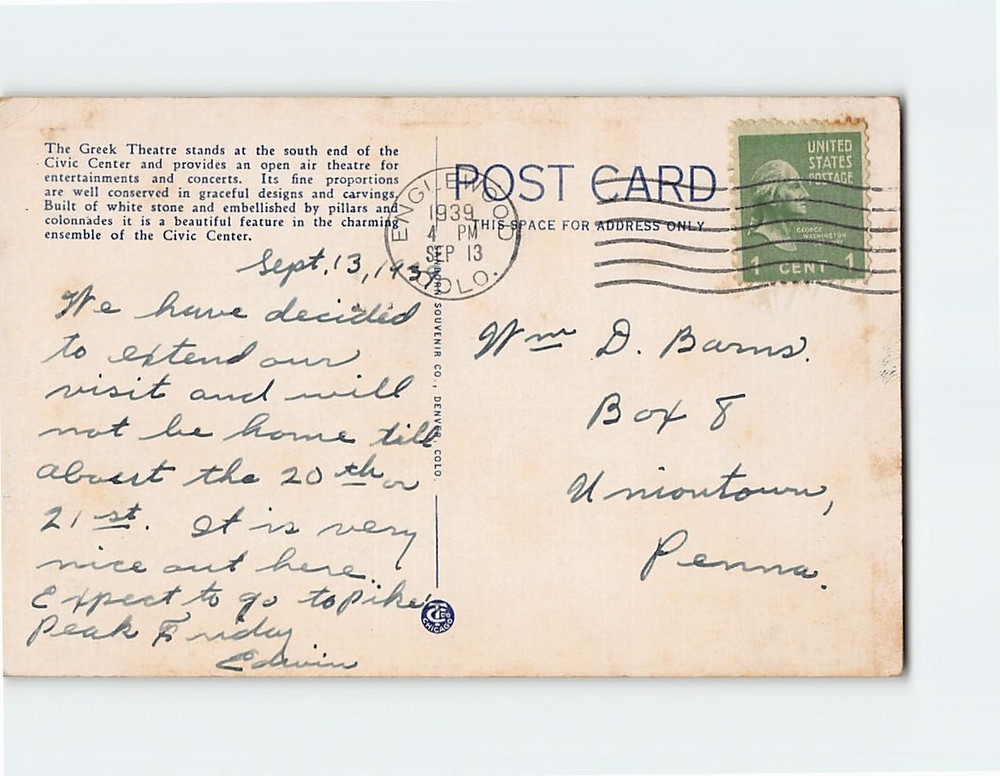 The Greek Theatre stands at the south end of the
Civic Center and provides an open air theatre for
entertainments and concerts. Its fine proportions
are well conserved in graceful designs and carvings.
Built of white stone and embellished by pillars and
colonnades it is a beautiful feature in the charming
ensemble of the Civic Center.
Sept. 13, 1939
We have decided
to extend our
visit and will
not be home till
about the 20th or
21st. It is very
nice out here.
Expect to go to Pike's
Peak Friday
Edwin
SOUVENIR CO., DENVER, COLO.
CHICAGO
POST CARD
THIS SPACE FOR ADDRESS ONLY
ENGLEWOOD
1939
4 PM
SEP 13
COLO.
UNITED
STATES
POSTAGE
GEORGE
WASHINGTON
1 CENT 1
Wm D. Barns.
Box 8
Uniontown,
Penna.